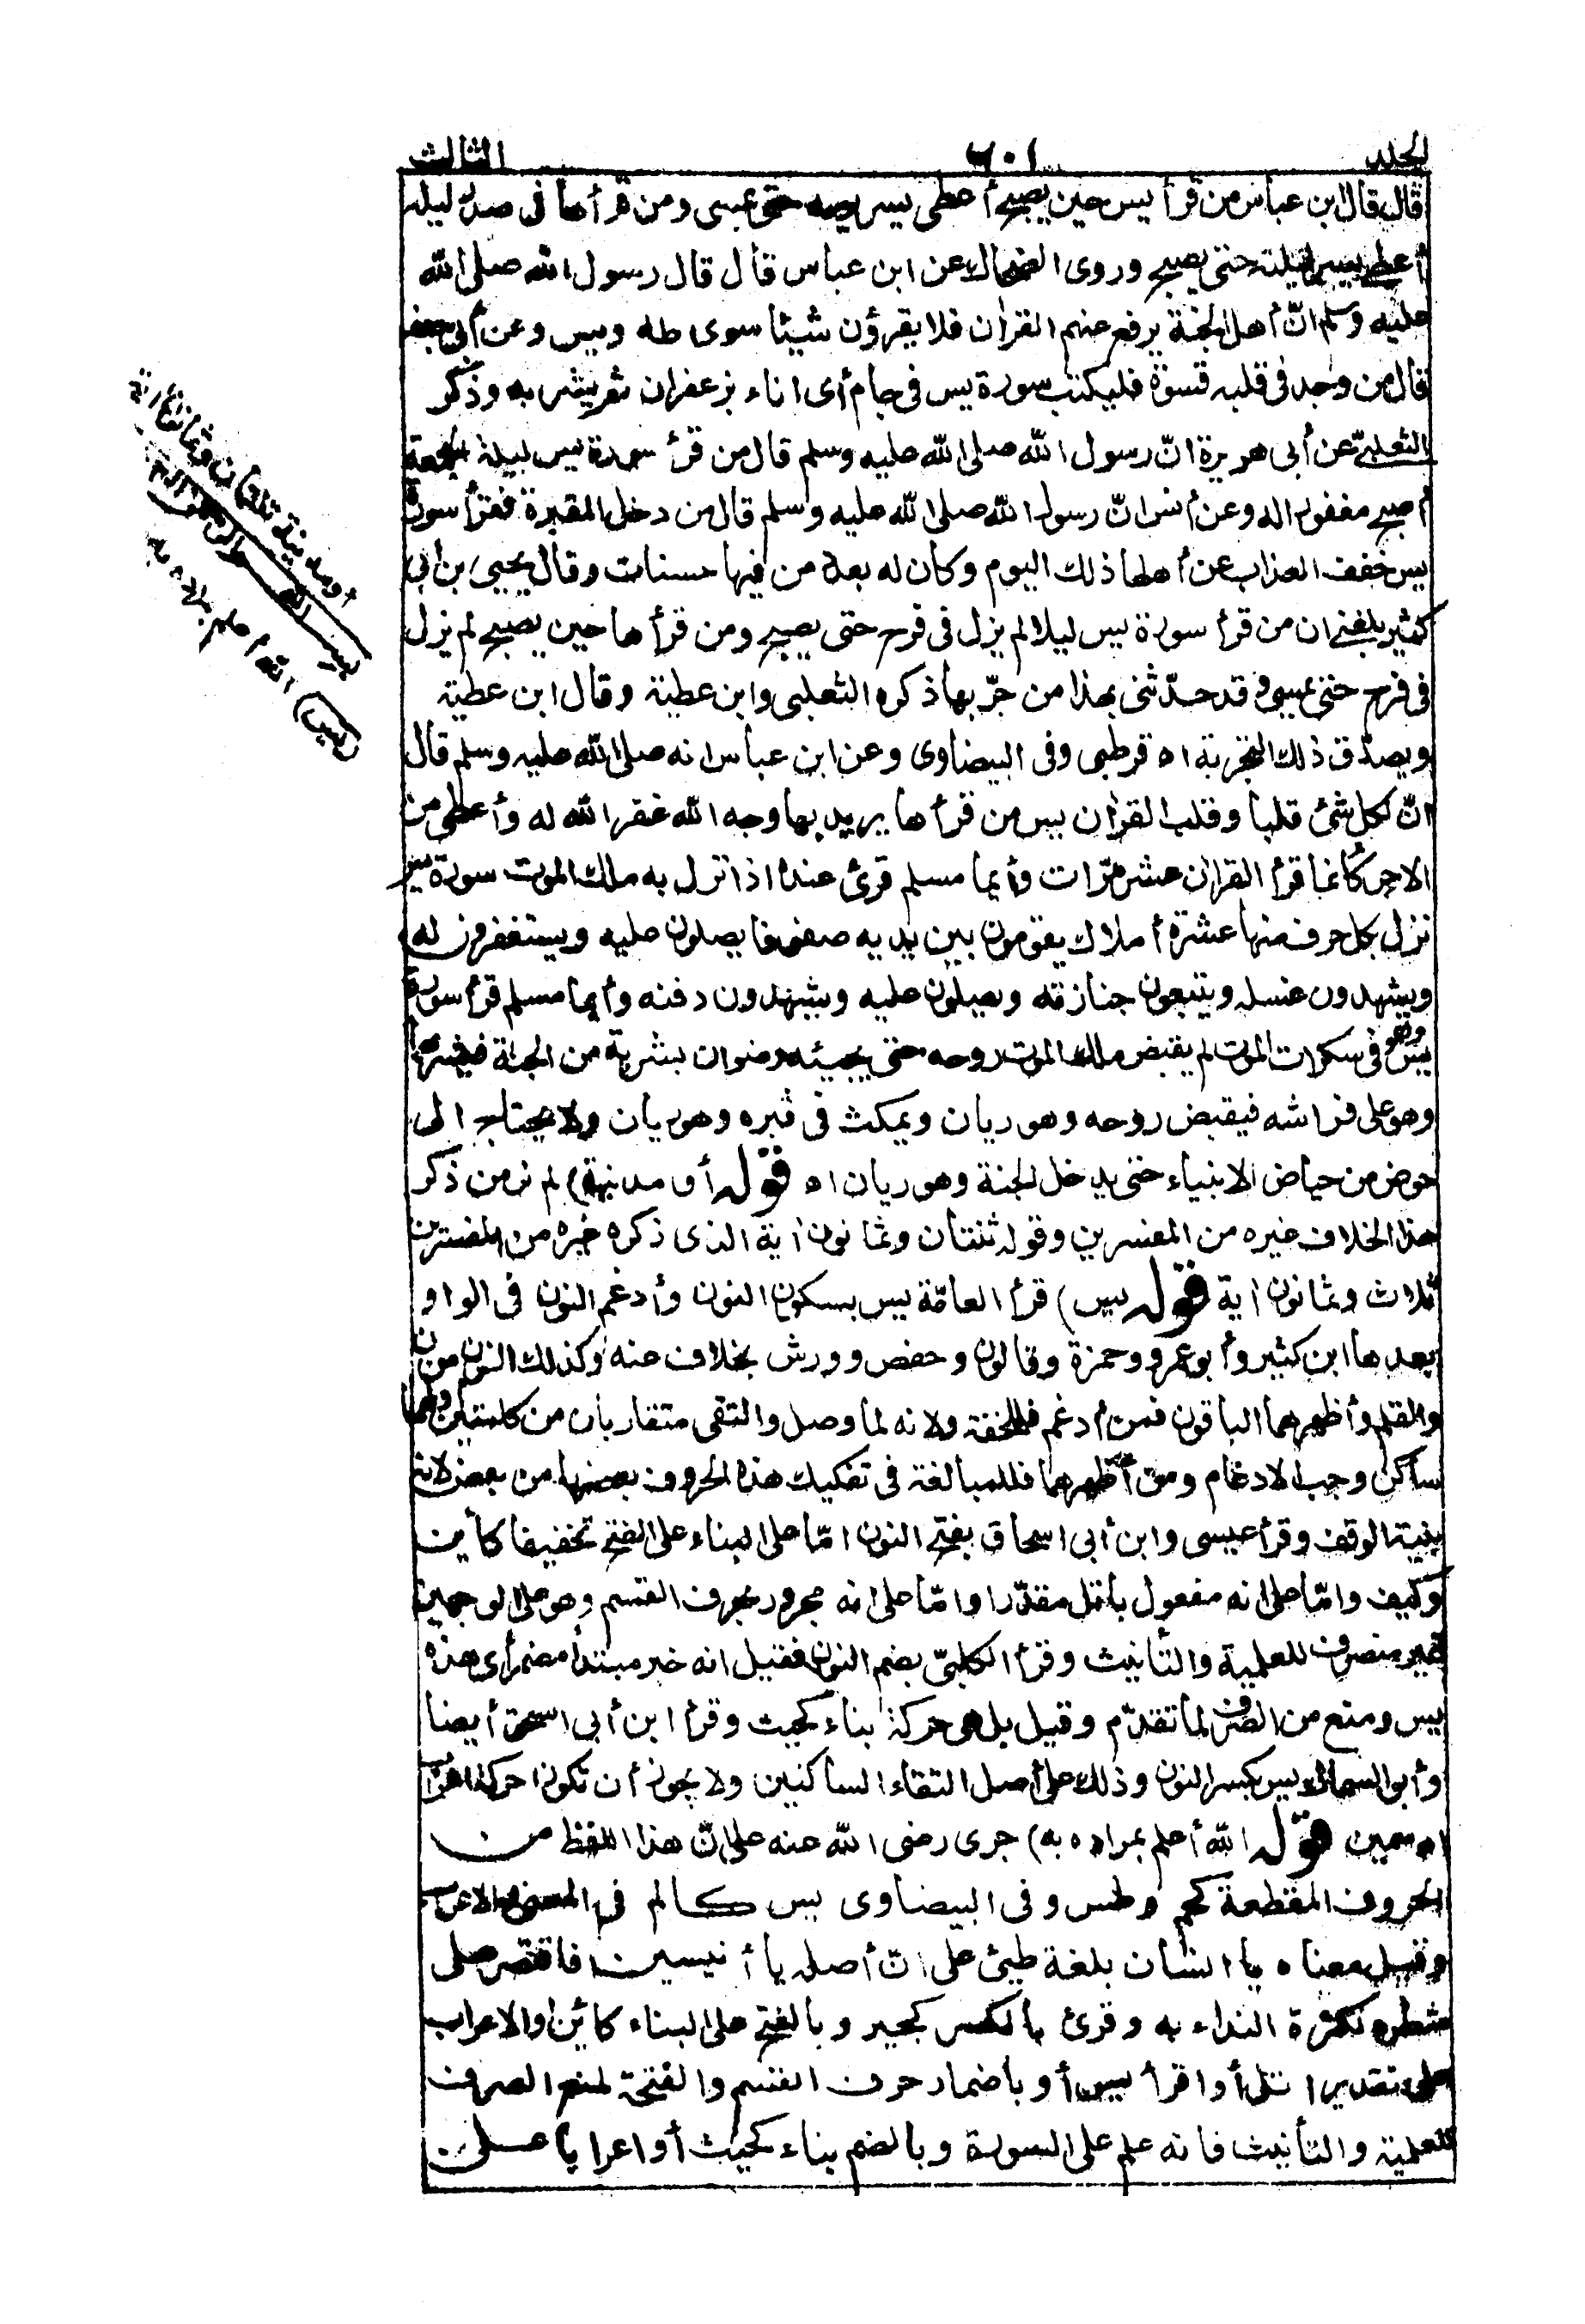 الجلد ٦٠١ الثالث
قال قال ابن عباس من قرأ يس حين يصبح أعطى يسر يومه حتى يمسى ومن قرأها فى صدر ليله
أعطى يسر ليلته حتى يصبح وروى الضحاك عن ابن عباس قال قال رسول الله صلى الله
عليه وسلم انّ أهل الجنة يرفع عنهم القرآن فلا يقرؤن شيئا سوى طه ويس وعن أبى جعفر
قال من وجد فى قلبه قسوة فليكتب سورة يس فى جام أى اناء بزعفران ثم يشربه وذكر
الثعلبىّ عن أبى هريرة انّ رسول الله صلى الله عليه وسلم قال من قرأ سورة يس ليلة الجمعة
أصبح مغفورا له وعن أنس انّ رسول الله صلى الله عليه وسلم قال من دخل المقبرة فقرأ سورة
يس خفف العذاب عن أهلها ذلك اليوم وكان له بعدد من فيها حسنات وقال يحيى بن أبى
كثير بلغنى ان من قرأ سورة يس ليلا لم يزل فى فرح حتى يصبح ومن قرأها حين يصبح لم يزل
فى فرح حتى يمسى وقد حدّثنى بهذا من جرّبها ذكره الثعلبى وابن عطية وقال ابن عطية
ويصدّق ذلك التجربة اه قرطبى وفى البيضاوى وعن ابن عباس انه صلى الله عليه وسلم قال
انّ لكل شئ قلبا وقلب القرآن يس من قرأها يريد بها وجه الله غفر الله له وأعطى من
الاجر كأنما قرأ القرآن عشر مرّات وأيما مسلم قرئ عنده اذا نزل به ملك الموت سورة يس
نزل بكل حرف منها عشرة أملاك يقومون بين يديه صفوفا يصلون عليه ويستغفرون له
ويشهدون غسله ويتبعون جنازته ويصلون عليه ويشهدون دفنه وأيما مسلم قرأ سورة
يس وهو فى سكرات الموت لم يقبض ملك الموت روحه حتى يجيئه رضوان بشربة من الجنة فيشربها
وهو على فراشه فيقبض روحه وهو ريان ويمكث فى قبره وهو ريان ولا يحتاج الى
حوض من حياض الانبياء حتى يدخل الجنة وهو ريان اه قوله أو مدنية) لم نر من ذكر
هذا الخلاف غيره من المفسرين وقوله ثنتان وثمانون آية الذى ذكره غيره من المفسرين
ثلاث وثمانون آية قوله يس) قرأ العامّة يس بسكون النون وأدغم النون فى الواو
بعدها ابن كثير وأبو عمرو وحمزة وقالون وحفص وورش بخلاف عنه وكذلك النون من ن
والقلم وأظهرهما الباقون فمن أدغم فللخفة ولانه لما وصل والتقى متقاربان من كلمتين وأولهما
ساكن وجب الادغام ومن أظهرهما فللمبالغة فى تفكيك هذه الحروف بعضها من بعض لانه
بنية الوقف وقرأ عيسى وابن أبى اسحاق بفتح النون امّا على البناء على الفتح تخفيفا كأين
وكيف وامّا على انه مفعول باتل مقدّرا وامّا على انه مجرور بحرف القسم وهو على الوجهين
غير منصرف للعلمية والتأنيث وقرأ الكلبىّ بضم النون فقيل انه خبر مبتدأ مضمر أى هذه
يس ومنع من الصرف لما تقدّم وقيل بل هى حركة بناء كحيث وقرأ ابن أبى اسحق أيضا
وأبو السمال يس بكسر النون وذلك على أصل التقاء الساكنين ولا يجوز أن تكون حركة اعراب
اه سمين قوله الله أعلم بمراده به) جرى رضى الله عنه على انّ هذا اللفظ من
الحروف المقطعة كحم وطس وفى البيضاوى يس كالم فى المعنى والاعراب
وقيل معناه يا انسان بلغة طيئ على انّ أصله يا أنيسين فاقتصر على
شطره لكثرة النداء به وقرئ بالكسر كجير وبالفتح على البناء كأين أو الاعراب
على تقدير اتل أو اقرأ يس أو باضمار حرف القسم والفتحة لمنع الصرف
للعلمية والتأنيث فانه علم على السورة وبالضم بناء كحيث أو اعرابا على
أو مدنية ثلاثان وثمانون آية
بسم الله الرحمن الرحيم
(يس) الله أعلم بمراده به